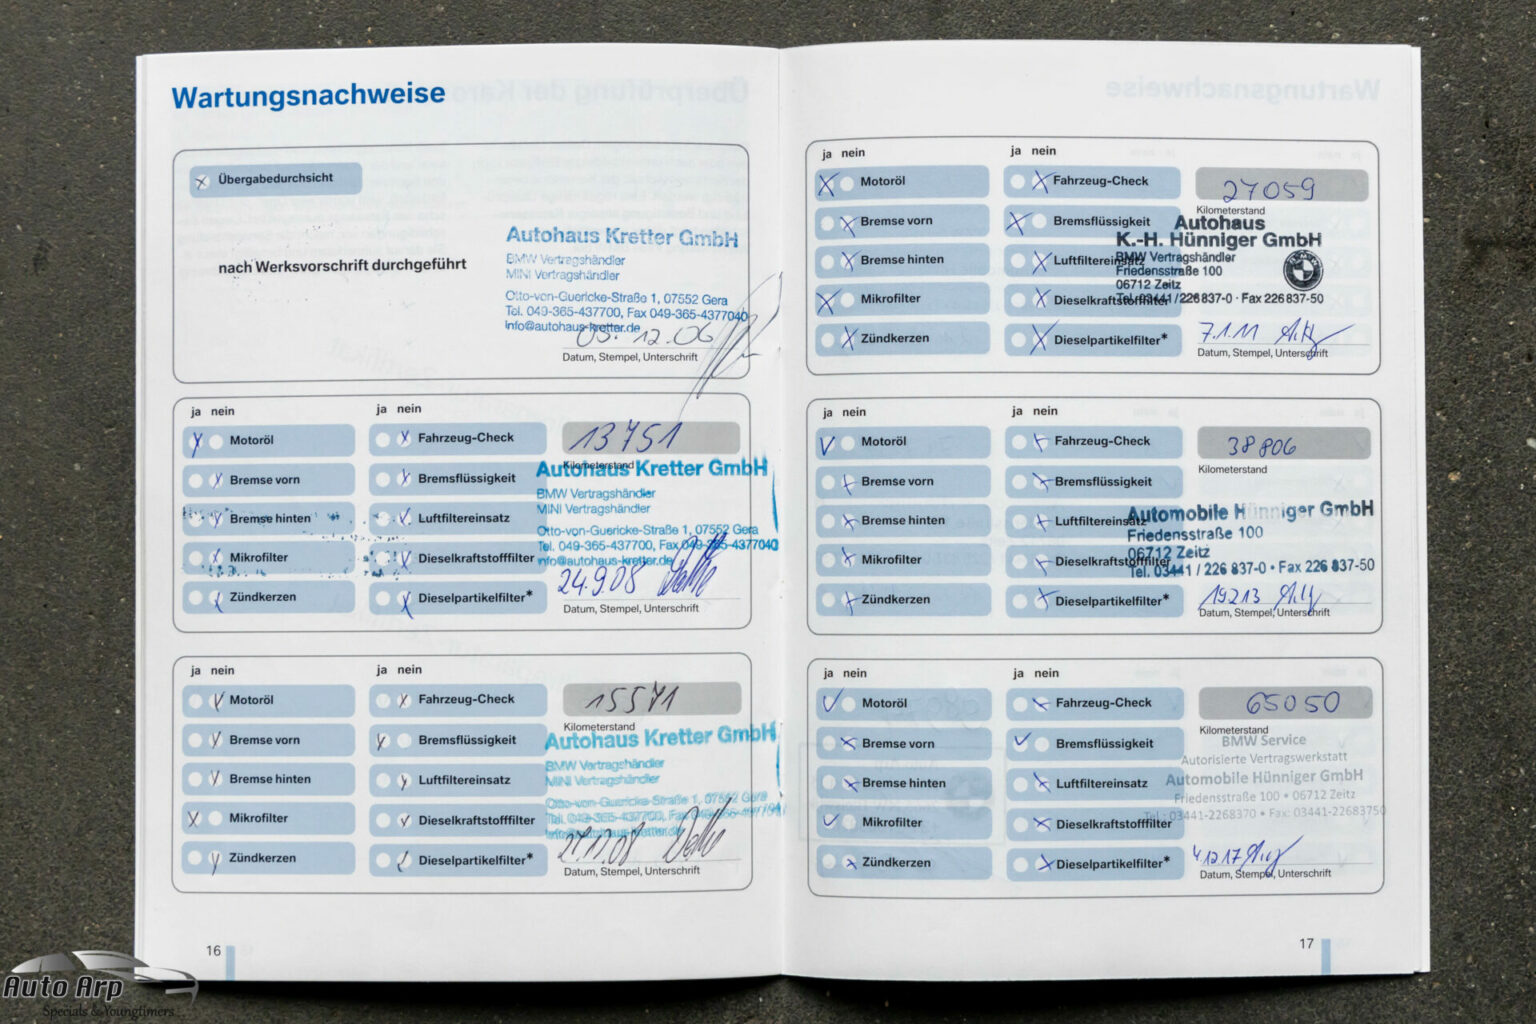 Wartungsnachweise
Übergabedurchsicht
nach Werksvorschrift durchgeführt
Autohaus Kretter GmbH
BMW Vertragshändler
MINI Vertragshändler
Otto-von-Guericke-Straße 1, 07552 Gera
Tel. 049-365-437700, Fax 049-365-4377040
info@autohaus-kretter.de
05. 12.06
Datum, Stempel, Unterschrift
ja nein
ja nein
Motoröl
Fahrzeug-Check
13751
Kilometerstand
Bremse vorn
Bremsflüssigkeit
Bremse hinten
Luftfiltereinsatz
Mikrofilter
Dieselkraftstofffilter
Zündkerzen
Dieselpartikelfilter*
Autohaus Kretter GmbH
BMW Vertragshändler
MINI Vertragshändler
Otto-von-Guericke-Straße 1, 07552 Gera
Tel. 049-365-437700, Fax 049-365-4377040
info@autohaus-kretter.de
24.9.08
Datum, Stempel, Unterschrift
ja nein
ja nein
Motoröl
Fahrzeug-Check
15571
Kilometerstand
Bremse vorn
Bremsflüssigkeit
Bremse hinten
Luftfiltereinsatz
Mikrofilter
Dieselkraftstofffilter
Zündkerzen
Dieselpartikelfilter*
Autohaus Kretter GmbH
BMW Vertragshändler
MINI Vertragshändler
Otto-von-Guericke-Straße 1, 07552 Gera
Tel. 049-365-437700, Fax 049-365-4377040
info@autohaus-kretter.de
Datum, Stempel, Unterschrift
16
ja nein
ja nein
Motoröl
Fahrzeug-Check
27059
Kilometerstand
Bremse vorn
Bremsflüssigkeit
Bremse hinten
Luftfiltereinsatz
Mikrofilter
Dieselkraftstofffilter
Zündkerzen
Dieselpartikelfilter*
Autohaus
K.-H. Hünniger GmbH
BMW Vertragshändler
Friedensstraße 100
06712 Zeitz
Tel. 03441/226 837-0 · Fax 226 837-50
7.1.11
Datum, Stempel, Unterschrift
ja nein
ja nein
Motoröl
Fahrzeug-Check
38806
Kilometerstand
Bremse vorn
Bremsflüssigkeit
Bremse hinten
Luftfiltereinsatz
Mikrofilter
Dieselkraftstofffilter
Zündkerzen
Dieselpartikelfilter*
Automobile Hünniger GmbH
Friedensstraße 100
06712 Zeitz
Tel. 03441 / 226 837-0 • Fax 226 837-50
Datum, Stempel, Unterschrift
ja nein
ja nein
Motoröl
Fahrzeug-Check
65050
Kilometerstand
Bremse vorn
Bremsflüssigkeit
Bremse hinten
Luftfiltereinsatz
Mikrofilter
Dieselkraftstofffilter
Zündkerzen
Dieselpartikelfilter*
BMW Service
Autorisierte Vertragswerkstatt
Automobile Hünniger GmbH
Friedensstraße 100 • 06712 Zeitz
Tel.: 03441-2268370 • Fax: 03441-22683750
4.12.17
Datum, Stempel, Unterschrift
17
Auto Arp
Specials & Youngtimers